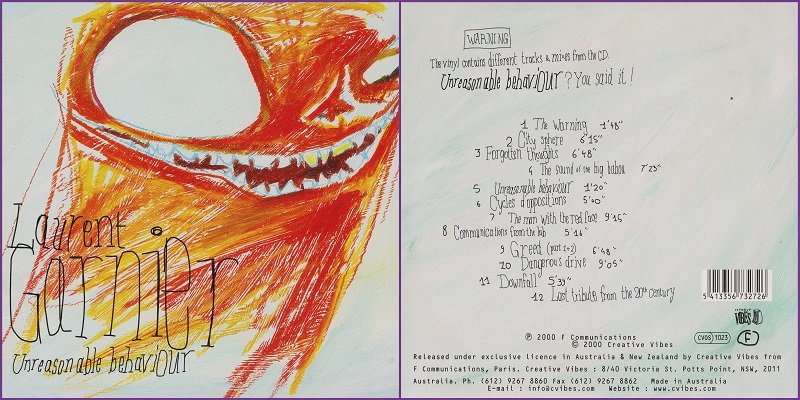 Laurent
Garnier
Unreasonable behaviour
WARNING
The vinyl contains different tracks & mixes from the CD.
Unreasonable behaviour ? You said it !
1 The warning 1'48"
2 City sphere 6'15"
3 Forgotten thoughts 6'48"
4 The sound of the big babou 7'23"
5 Unreasonable behaviour 1'20"
6 Cycles d'oppositions 5'40"
7 The man with the red face 9'15"
8 Communications from the lab 5'14"
9 Greed (part 1+2) 6'48"
10 Dangerous drive 9'05"
11 Downfall 5'39"
12 Last tribute from the 20th century
5 413356 732726
VIBES
CVOS 1023
F
℗ 2000 F Communications
© 2000 Creative Vibes
Released under exclusive licence in Australia & New Zealand by Creative Vibes from
F Communications, Paris. Creative Vibes : 8/40 Victoria St. Potts Point, NSW, 2011
Australia. Ph. (612) 9267 8860 Fax (612) 9267 8862 Made in Australia
E-mail : info@cvibes.com Website : www.cvibes.com